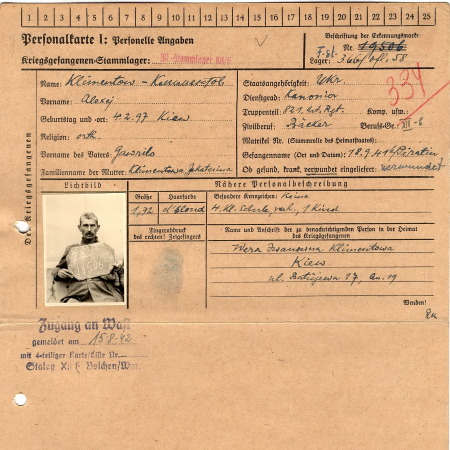 1 2 3 4 5 6 7 8 9 10 11 12 13 14 15 16 17 18 19 20 21 22 23 24 25
Personalkarte I: Personelle Angaben
Kriegsgefangenen-Stammlager:
Beschriftung der Erkennungsmarke
Nr. 19506
Lager:
334
Des Kriegsgefangenen
Name: Klimentow
Vorname: Alexej
Geburtstag und -ort: 4.2.97 Kiew
Religion: orth.
Vorname des Vaters: Gawrilo
Familienname der Mutter: Klimentowa, Jekaterina
Staatsangehörigkeit: Ukr.
Dienstgrad: Kanonier
Truppenteil: 821. Rgt. Komp. usw.:
Zivilberuf: Bäcker Berufs-Gr.: XII-b
Matrikel Nr. (Stammrolle des Heimatstaates):
Gefangennahme (Ort und Datum): 18.9.41 Piratin
Ob gesund, krank, verwundet eingeliefert: verwundet
Lichtbild
Nähere Personalbeschreibung
Größe Haarfarbe Besondere Kennzeichen: Keine
1,72 d'blond 4 Kl. Schule, verh., 1 Kind
Fingerabdruck des rechten! Zeigefingers
Name und Anschrift der zu benachrichtigenden Person in der Heimat des Kriegsgefangenen
Wera Klimentowa
Kiew
17,
Wenden!
Zugang an WaSt
gemeldet am 15.8.42
mit 4-teiliger Karte/Liste Nr.
Stalag XII F Bolchen/Wm.